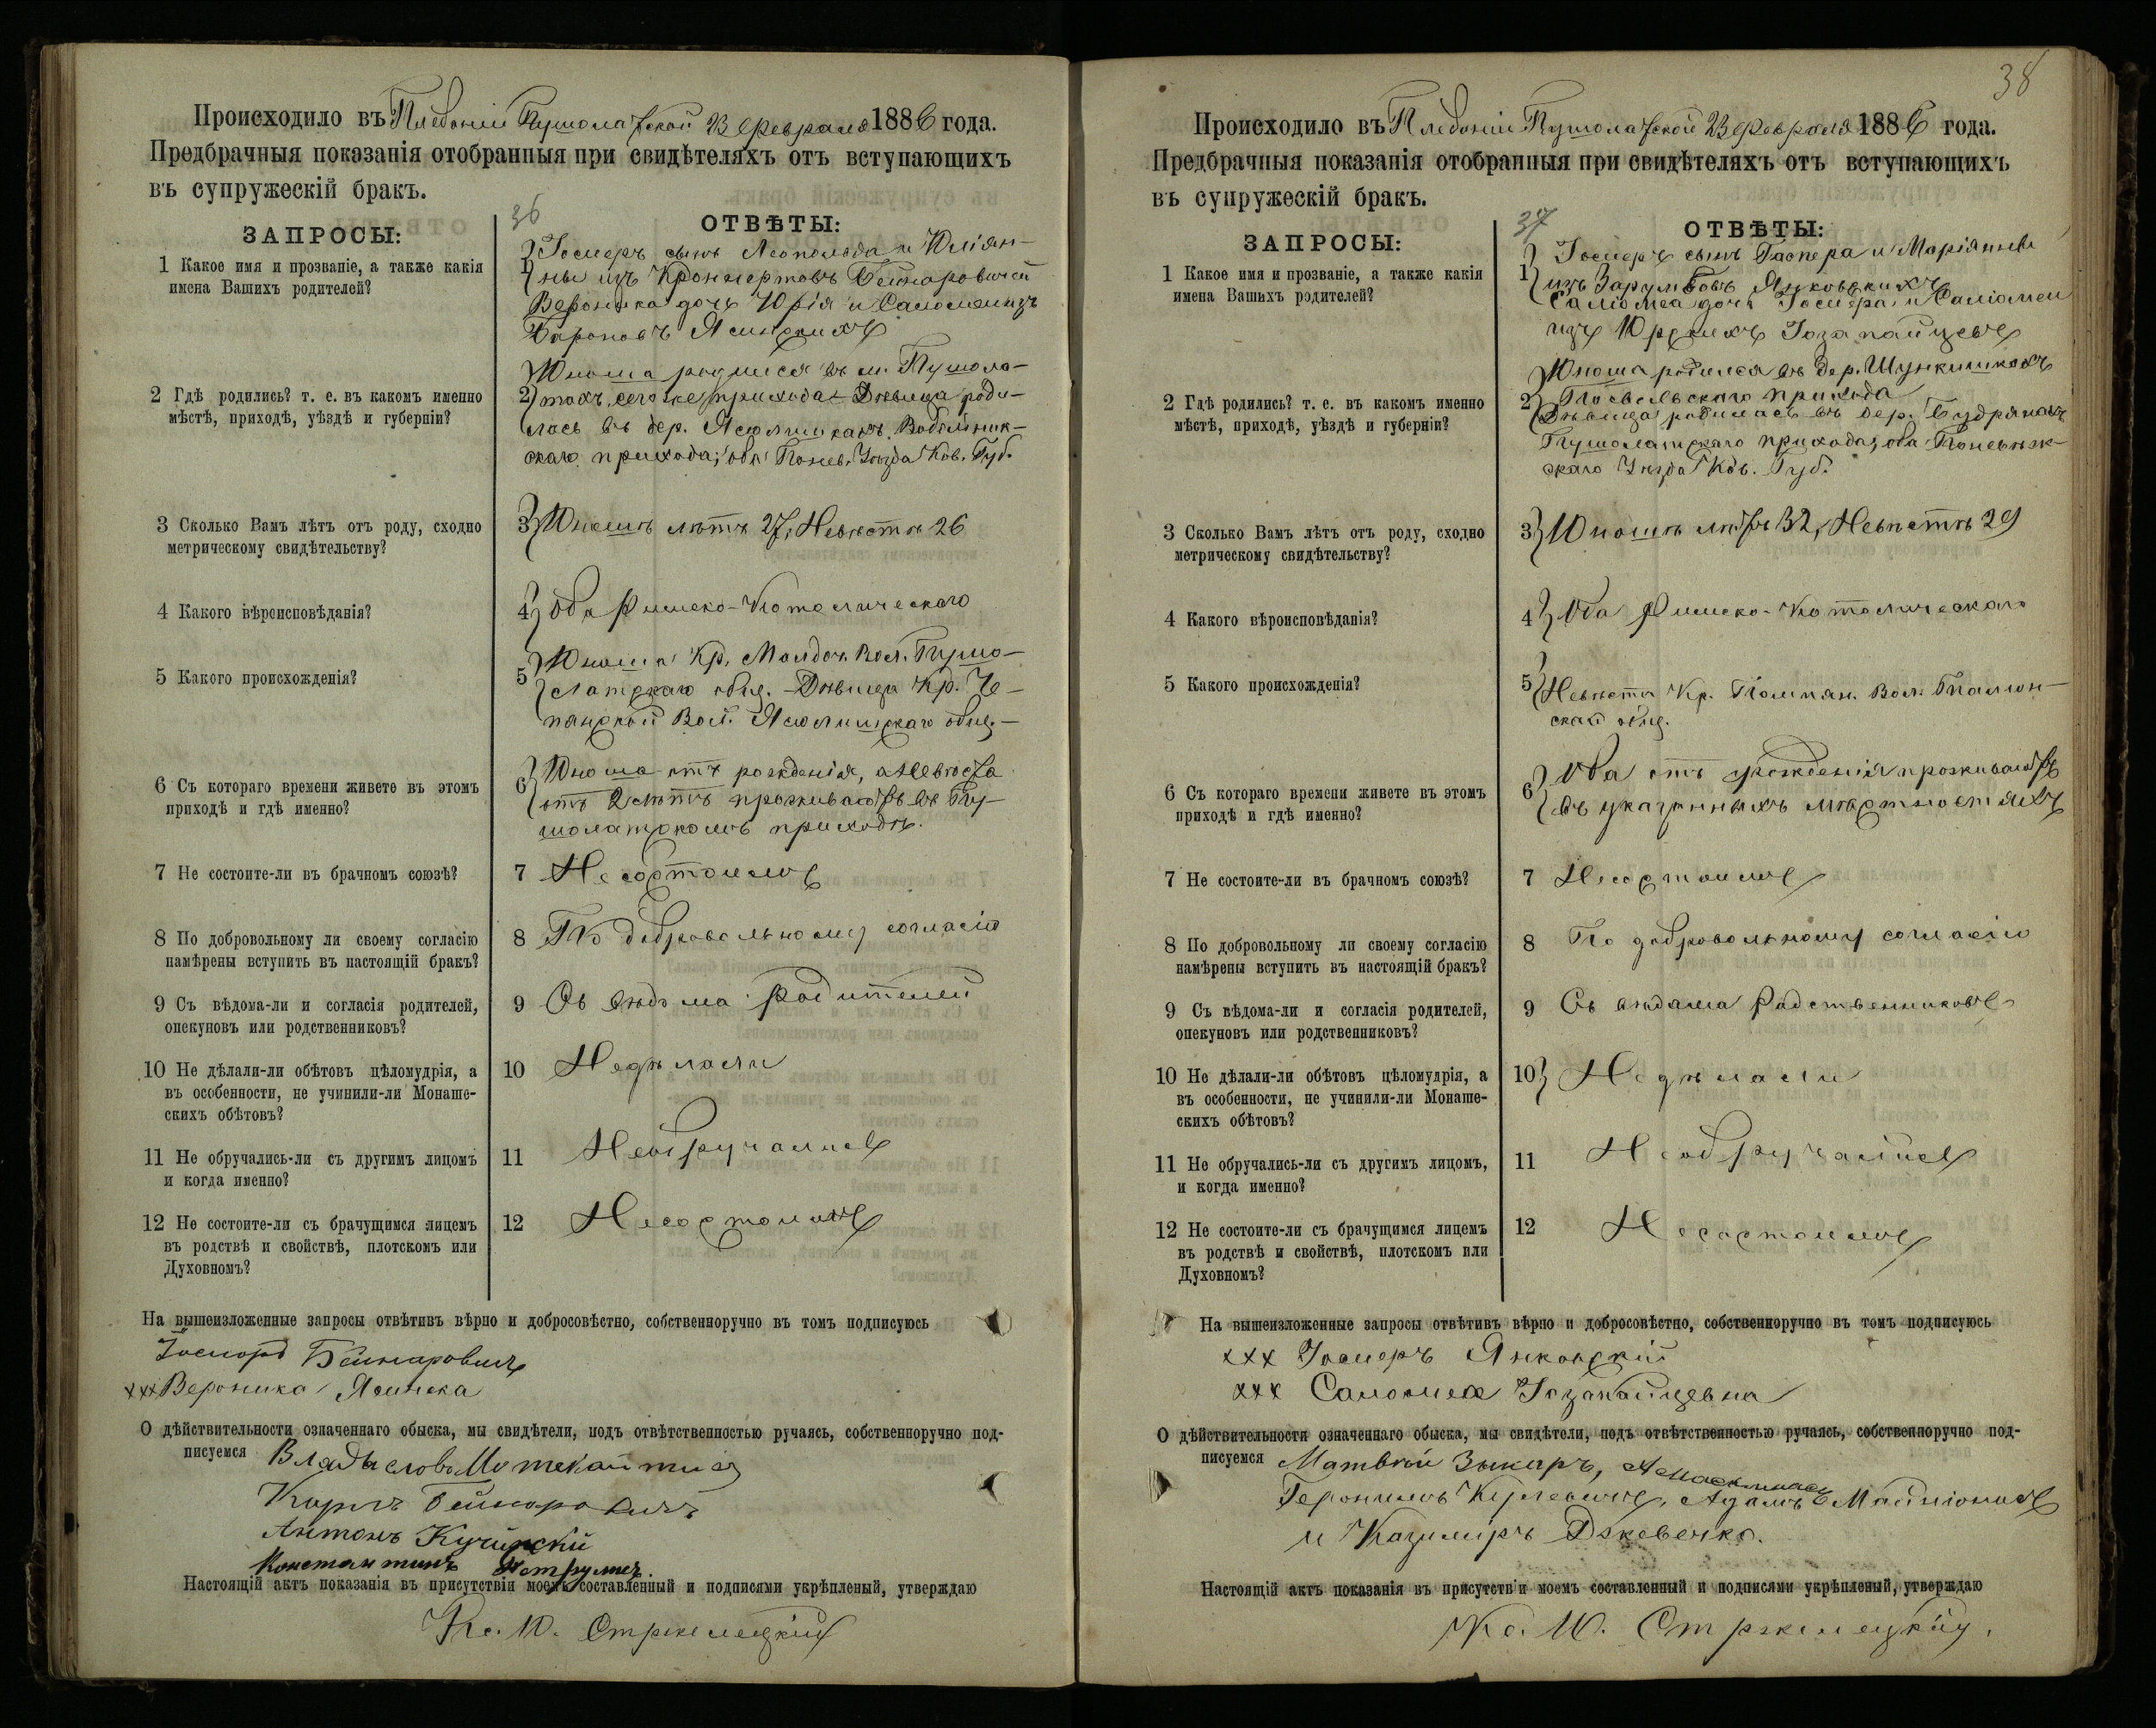 Происходило въ Плебаніи Пушолатской 23 Февраля 1886 года.
Предбрачныя показанія отобранныя при свидѣтеляхъ отъ вступающихъ
въ супружескій бракъ.
36
ЗАПРОСЫ:
ОТВѢТЫ:
1 Какое имя и прозваніе, а также какія
имена Вашихъ родителей?
1 сынъ Леопольда и Юліян-
ны изъ
Вероника дочь Юрія и Саломеи изъ
Бароновъ Ясинскихъ
2 Гдѣ родились? т. е. въ какомъ именно
мѣстѣ, приходѣ, уѣздѣ и губерніи?
2 Юноша родился въ м. Пушоло-
тахъ сегоже прихода Дѣвица роди-
лась въ дер.
скаго прихода; оба Понев. Уѣзда Ков. Губ.
3 Сколько Вамъ лѣтъ отъ роду, сходно
метрическому свидѣтельству?
3 Юношѣ лѣтъ 27, Невѣстѣ 26
4 Какого вѣроисповѣданія?
4 Оба Римско-Католическаго
5 Какого происхожденія?
5 Юноша Кр. Вол. Пушо-
латскаго общ. Дѣвица Кр.
Вол. общ.
6 Съ котораго времени живете въ этомъ
приходѣ и гдѣ именно?
6 Юноша отъ рожденія, а Невѣста
отъ 2 лѣтъ проживаютъ въ Пу-
шолатскомъ приходѣ.
7 Не состоите-ли въ брачномъ союзѣ?
7 Несостоимъ
8 По добровольному ли своему согласію
намѣрены вступить въ настоящій бракъ?
8 По добровольному согласію
9 Съ вѣдома-ли и согласія родителей,
опекуновъ или родственниковъ?
9 Съ вѣдома Родителей
10 Не дѣлали-ли обѣтовъ цѣломудрія, а
въ особенности, не учинили-ли Монаше-
скихъ обѣтовъ?
10 Недѣлали
11 Не обручались-ли съ другимъ лицомъ
и когда именно?
11 Необручались
12 Не состоите-ли съ брачущимся лицемъ
въ родствѣ и свойствѣ, плотскомъ или
Духовномъ?
12 Несостоимъ
На вышеизложенные запросы отвѣтивъ вѣрно и добросовѣстно, собственноручно въ томъ подписуюсь
Бейнаровичъ
xxx Вероника Ясинска
О дѣйствительности означеннаго обыска, мы свидѣтели, подъ отвѣтственностью ручаясь, собственноручно под-
писуемся
Карлъ Бейнаровичъ
Антонъ Кучинскій
Константинъ
Настоящій актъ показанія въ присутствіи моемъ составленный и подписями укрѣпленый, утверждаю
Кс. Ю. Стржелецкій
38
Происходило въ Плебаніи Пушолатской 23 Февраля 1886 года.
Предбрачныя показанія отобранныя при свидѣтеляхъ отъ вступающихъ
въ супружескій бракъ.
37
ЗАПРОСЫ:
ОТВѢТЫ:
1 Какое имя и прозваніе, а также какія
имена Вашихъ родителей?
1 сынъ Гаспера и Маріянны
изъ Зарумбовъ Янковскихъ
Саломея дочь и Саломеи
изъ
2 Гдѣ родились? т. е. въ какомъ именно
мѣстѣ, приходѣ, уѣздѣ и губерніи?
2 Юноша родился въ дер.
прихода
Дѣвица родилась въ дер.
Пушолатскаго прихода, оба Поневѣж-
скаго Уѣзда Ков. Губ.
3 Сколько Вамъ лѣтъ отъ роду, сходно
метрическому свидѣтельству?
3 Юношѣ лѣтъ 32, Невѣстѣ 29
4 Какого вѣроисповѣданія?
4 Оба Римско-Католическаго
5 Какого происхожденія?
5 Невѣста Кр. Вол.
общ.
6 Съ котораго времени живете въ этомъ
приходѣ и гдѣ именно?
6 Оба отъ рожденія проживаютъ
въ указанныхъ мѣстностяхъ
7 Не состоите-ли въ брачномъ союзѣ?
7 Несостоимъ
8 По добровольному ли своему согласію
намѣрены вступить въ настоящій бракъ?
8 По добровольному согласію
9 Съ вѣдома-ли и согласія родителей,
опекуновъ или родственниковъ?
9 Съ вѣдома Родственниковъ
10 Не дѣлали-ли обѣтовъ цѣломудрія, а
въ особенности, не учинили-ли Монаше-
скихъ обѣтовъ?
10 Недѣлали
11 Не обручались-ли съ другимъ лицомъ,
и когда именно?
11 Необручались
12 Не состоите-ли съ брачущимся лицемъ
въ родствѣ и свойствѣ, плотскомъ или
Духовномъ?
12 Несостоимъ
На вышеизложенные запросы отвѣтивъ вѣрно и добросовѣстно, собственноручно въ томъ подписуюсь
xxx Янковскій
xxx Саломея
О дѣйствительности означеннаго обыска, мы свидѣтели, подъ отвѣтственностью ручаясь, собственноручно под-
писуемся Матвѣй
Геронимъ Адамъ
и Казиміръ
Настоящій актъ показанія въ присутствіи моемъ составленный и подписями укрѣпленый, утверждаю
Кс. Ю. Стржелецкій.